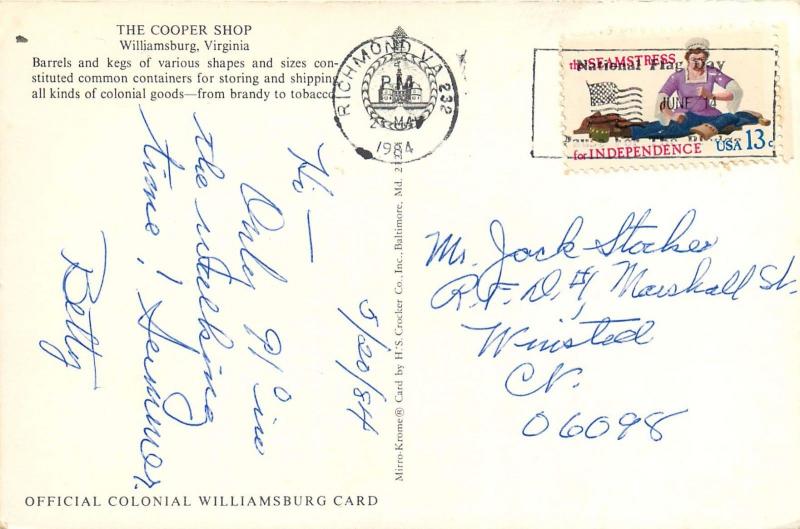 THE COOPER SHOP
Williamsburg, Virginia
Barrels and kegs of various shapes and sizes con-
stituted common containers for storing and shipping
all kinds of colonial goods—from brandy to tobacco.
RICHMOND VA 232
PM
MAY
1984
National Flag Day
JUNE 14
the SEAMSTRESS
for INDEPENDENCE
USA 13c
5/20/84
Hi —
Only 91° in
the
time!
Betty
Mr. Jack Stocker
R.F.D. #1, Marshall St.
Winsted
Ct.
06098
Mirro-Krome® Card by H. S. Crocker Co., Inc., Baltimore, Md.
OFFICIAL COLONIAL WILLIAMSBURG CARD